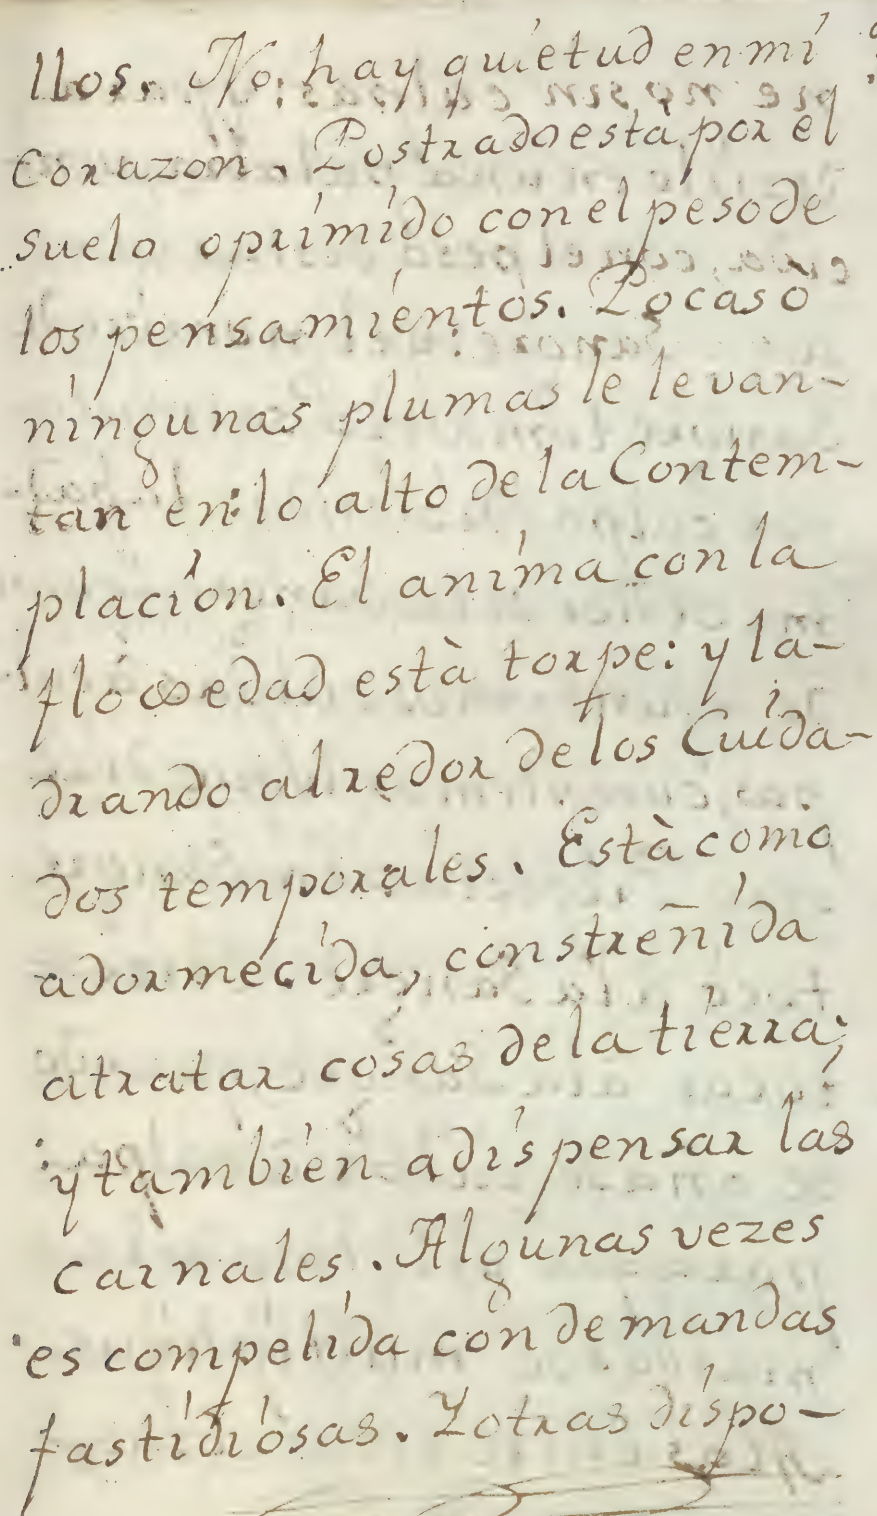 llos. No hay quietud en mi
Corazón. Postrado està por el
suelo oprimido con el peso de
los pensamientos. Pocas ó
ningunas plumas le levan-
tan en lo alto de la Contem-
placion. El anima con la
floxedad està torpe: y la-
drando alredor de los Cuida-
dos temporales. Està como
adormecida, constreñida
a tratar cosas de la tierra;
y tambien a dispensar las
carnales. Algunas vezes
es compelida con demandas
fastidiosas. Y otras dispo-